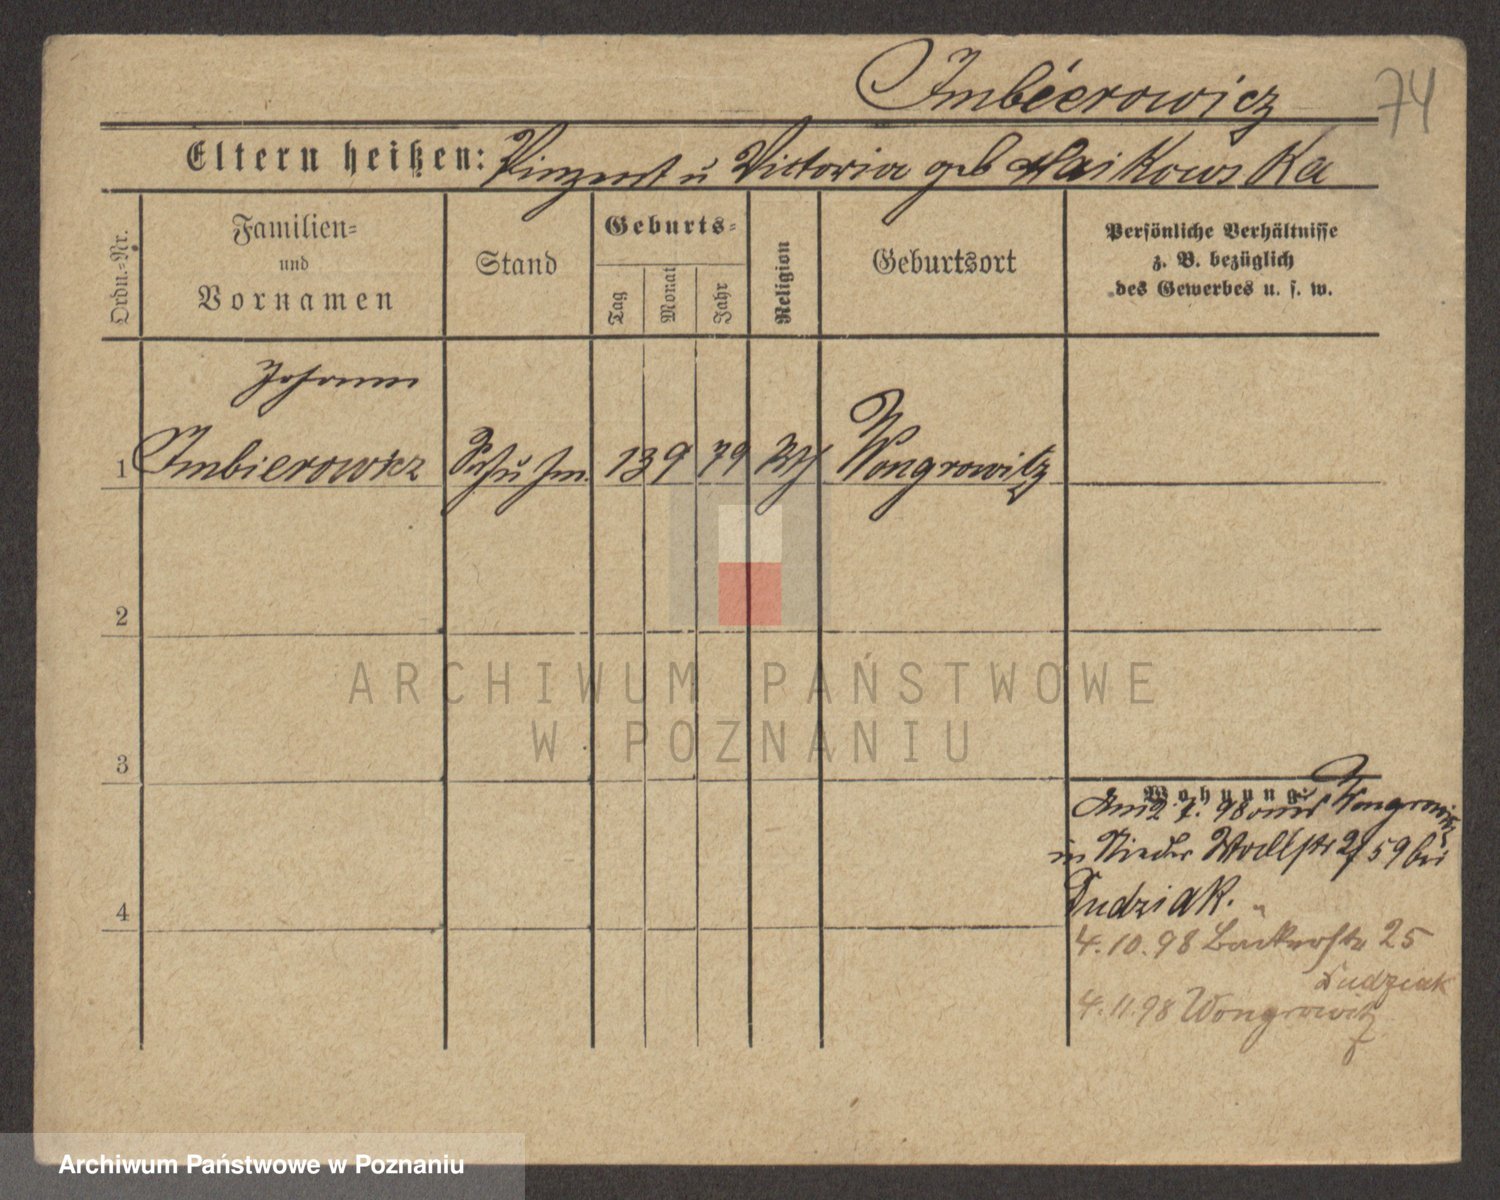 Imbierowicz
74
Eltern heißen: Vinzent u Victoria geb Haikowska
Ordn.-Nr.
Familien-
und
Vornamen
Stand
Geburts-
Tag
Monat
Jahr
Religion
Geburtsort
Persönliche Verhältnisse
z. B. bezüglich
des Gewerbes u. s. w.
Johann
1 Imbierowicz Schuhm. 13 9 79 Wongrowitz
2
3
4
ARCHIWUM PAŃSTWOWE
W POZNANIU
Wohnung:
Am 2.7.98 aus Wongrowitz
in Nieder Wallstr 59 bei
Dudziak.
4.10.98 Bäckerstr 25
Dudziak
4.11.98 Wongrowitz
Archiwum Państwowe w Poznaniu